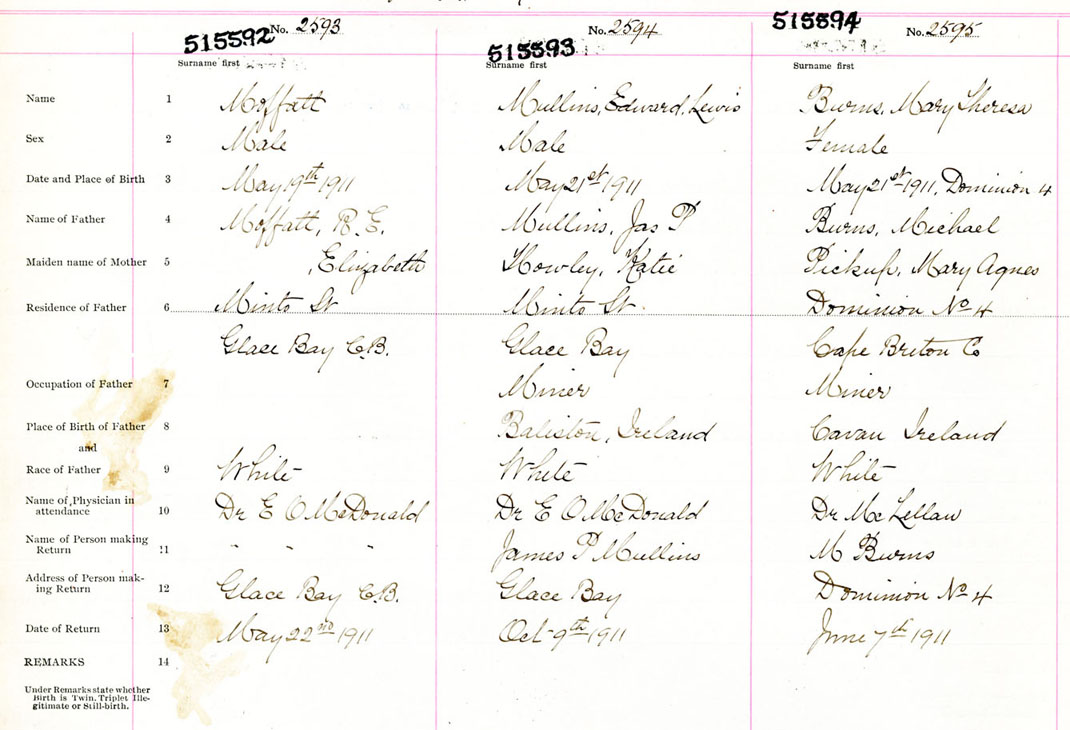 No. 2593 No. 2594 No. 2595
515592 515593 515594
Surname first Surname first Surname first
Name 1 Moffatt Mullins, Edward, Lewis Burns, Mary Theresa
Sex 2 Male Male Female
Date and Place of Birth 3 May 19th 1911 May 21st 1911 May 21st 1911, Dominion 4
Name of Father 4 Moffatt, R. E. Mullins, Jas P Burns, Michael
Maiden name of Mother 5 , Elizabeth Howley, Katie Pickup, Mary Agnes
Residence of Father 6 Minto St Minto St. Dominion No 4
Glace Bay C.B. Glace Bay Cape Breton Co
Occupation of Father 7 Miner Miner
Place of Birth of Father 8 Baliston, Ireland Cavan Ireland
and
Race of Father 9 White White White
Name of Physician in
attendance 10 Dr E O McDonald Dr E O McDonald Dr McLellan
Name of Person making
Return 11 " " " James P Mullins M Burns
Address of Person mak-
ing Return 12 Glace Bay C.B. Glace Bay Dominion No 4
Date of Return 13 May 22nd 1911 Oct 9th 1911 June 7th 1911
REMARKS 14
Under Remarks state whether
Birth is Twin, Triplet Ille-
gitimate or Still-birth.